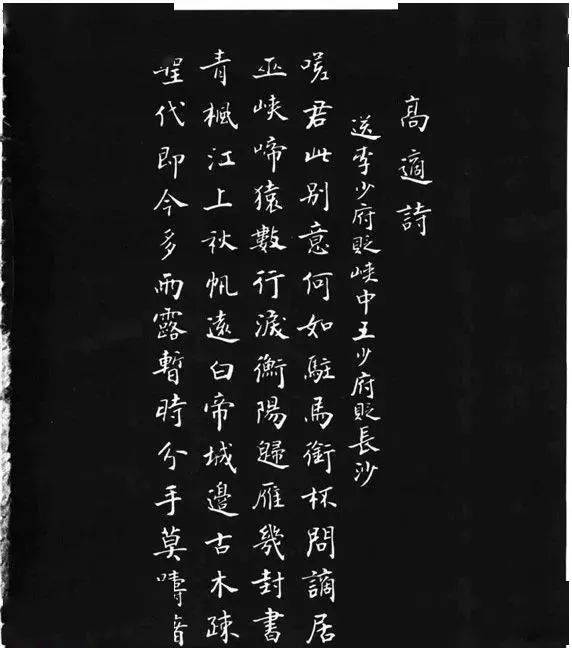 高適詩
送李少府貶峽中王少府貶長沙
嗟君此别意何如駐馬銜杯問謫居
巫峽啼猿數行淚衡陽歸雁幾封書
青楓江上秋帆遠白帝城邊古木疎
聖代即今多雨露暫時分手莫躊